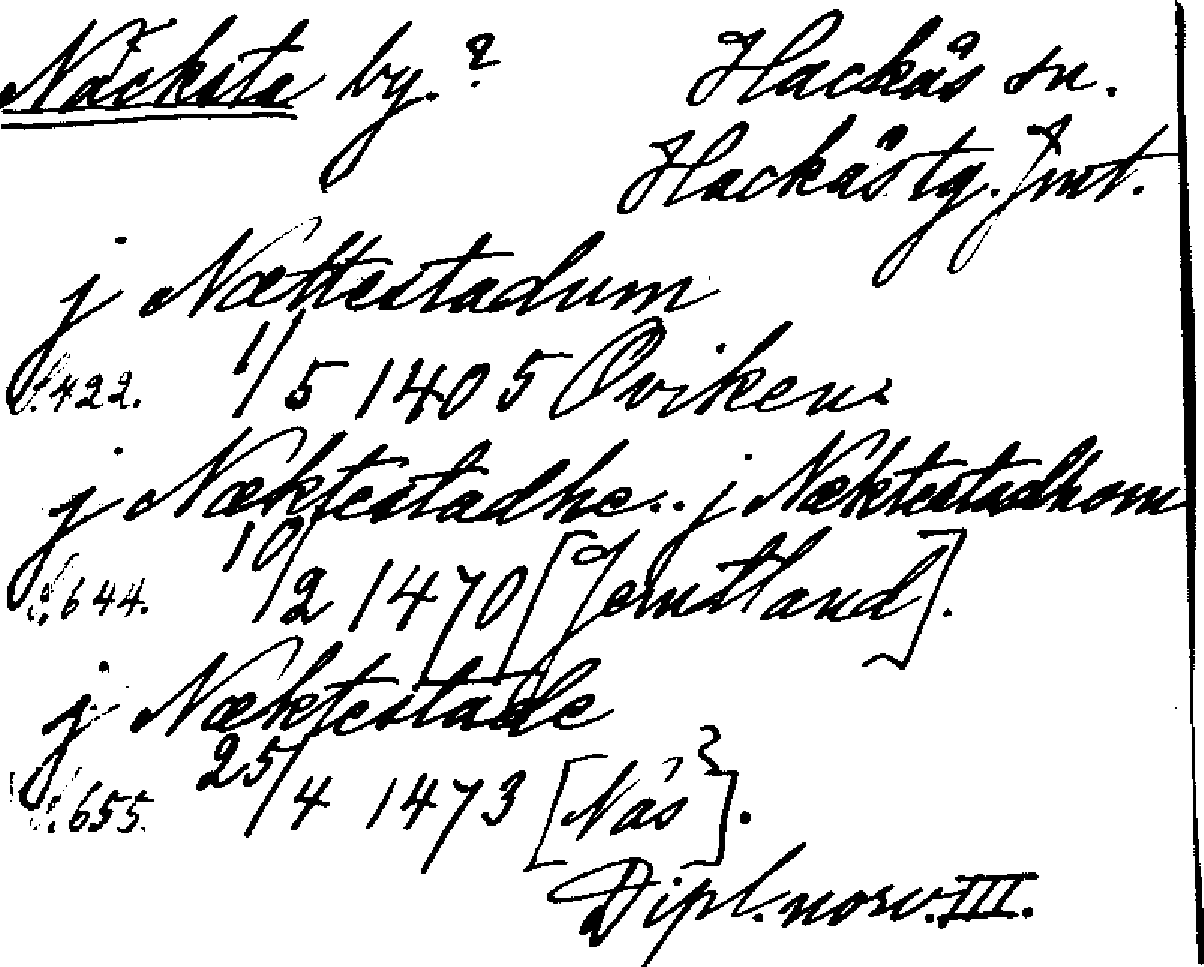 Näcksta by.? Hackås sn.
Hackås tg. Jmt.
j Nættestadum
S.422. 1/5 1405 Oviken.
j Næktestadhe.. j Næktestadhom
S.644. 10/2 1470 [Jemtland].
j Næktestade
S.655. 25/4 1473 [Näs?].
Dipl. norv. III.